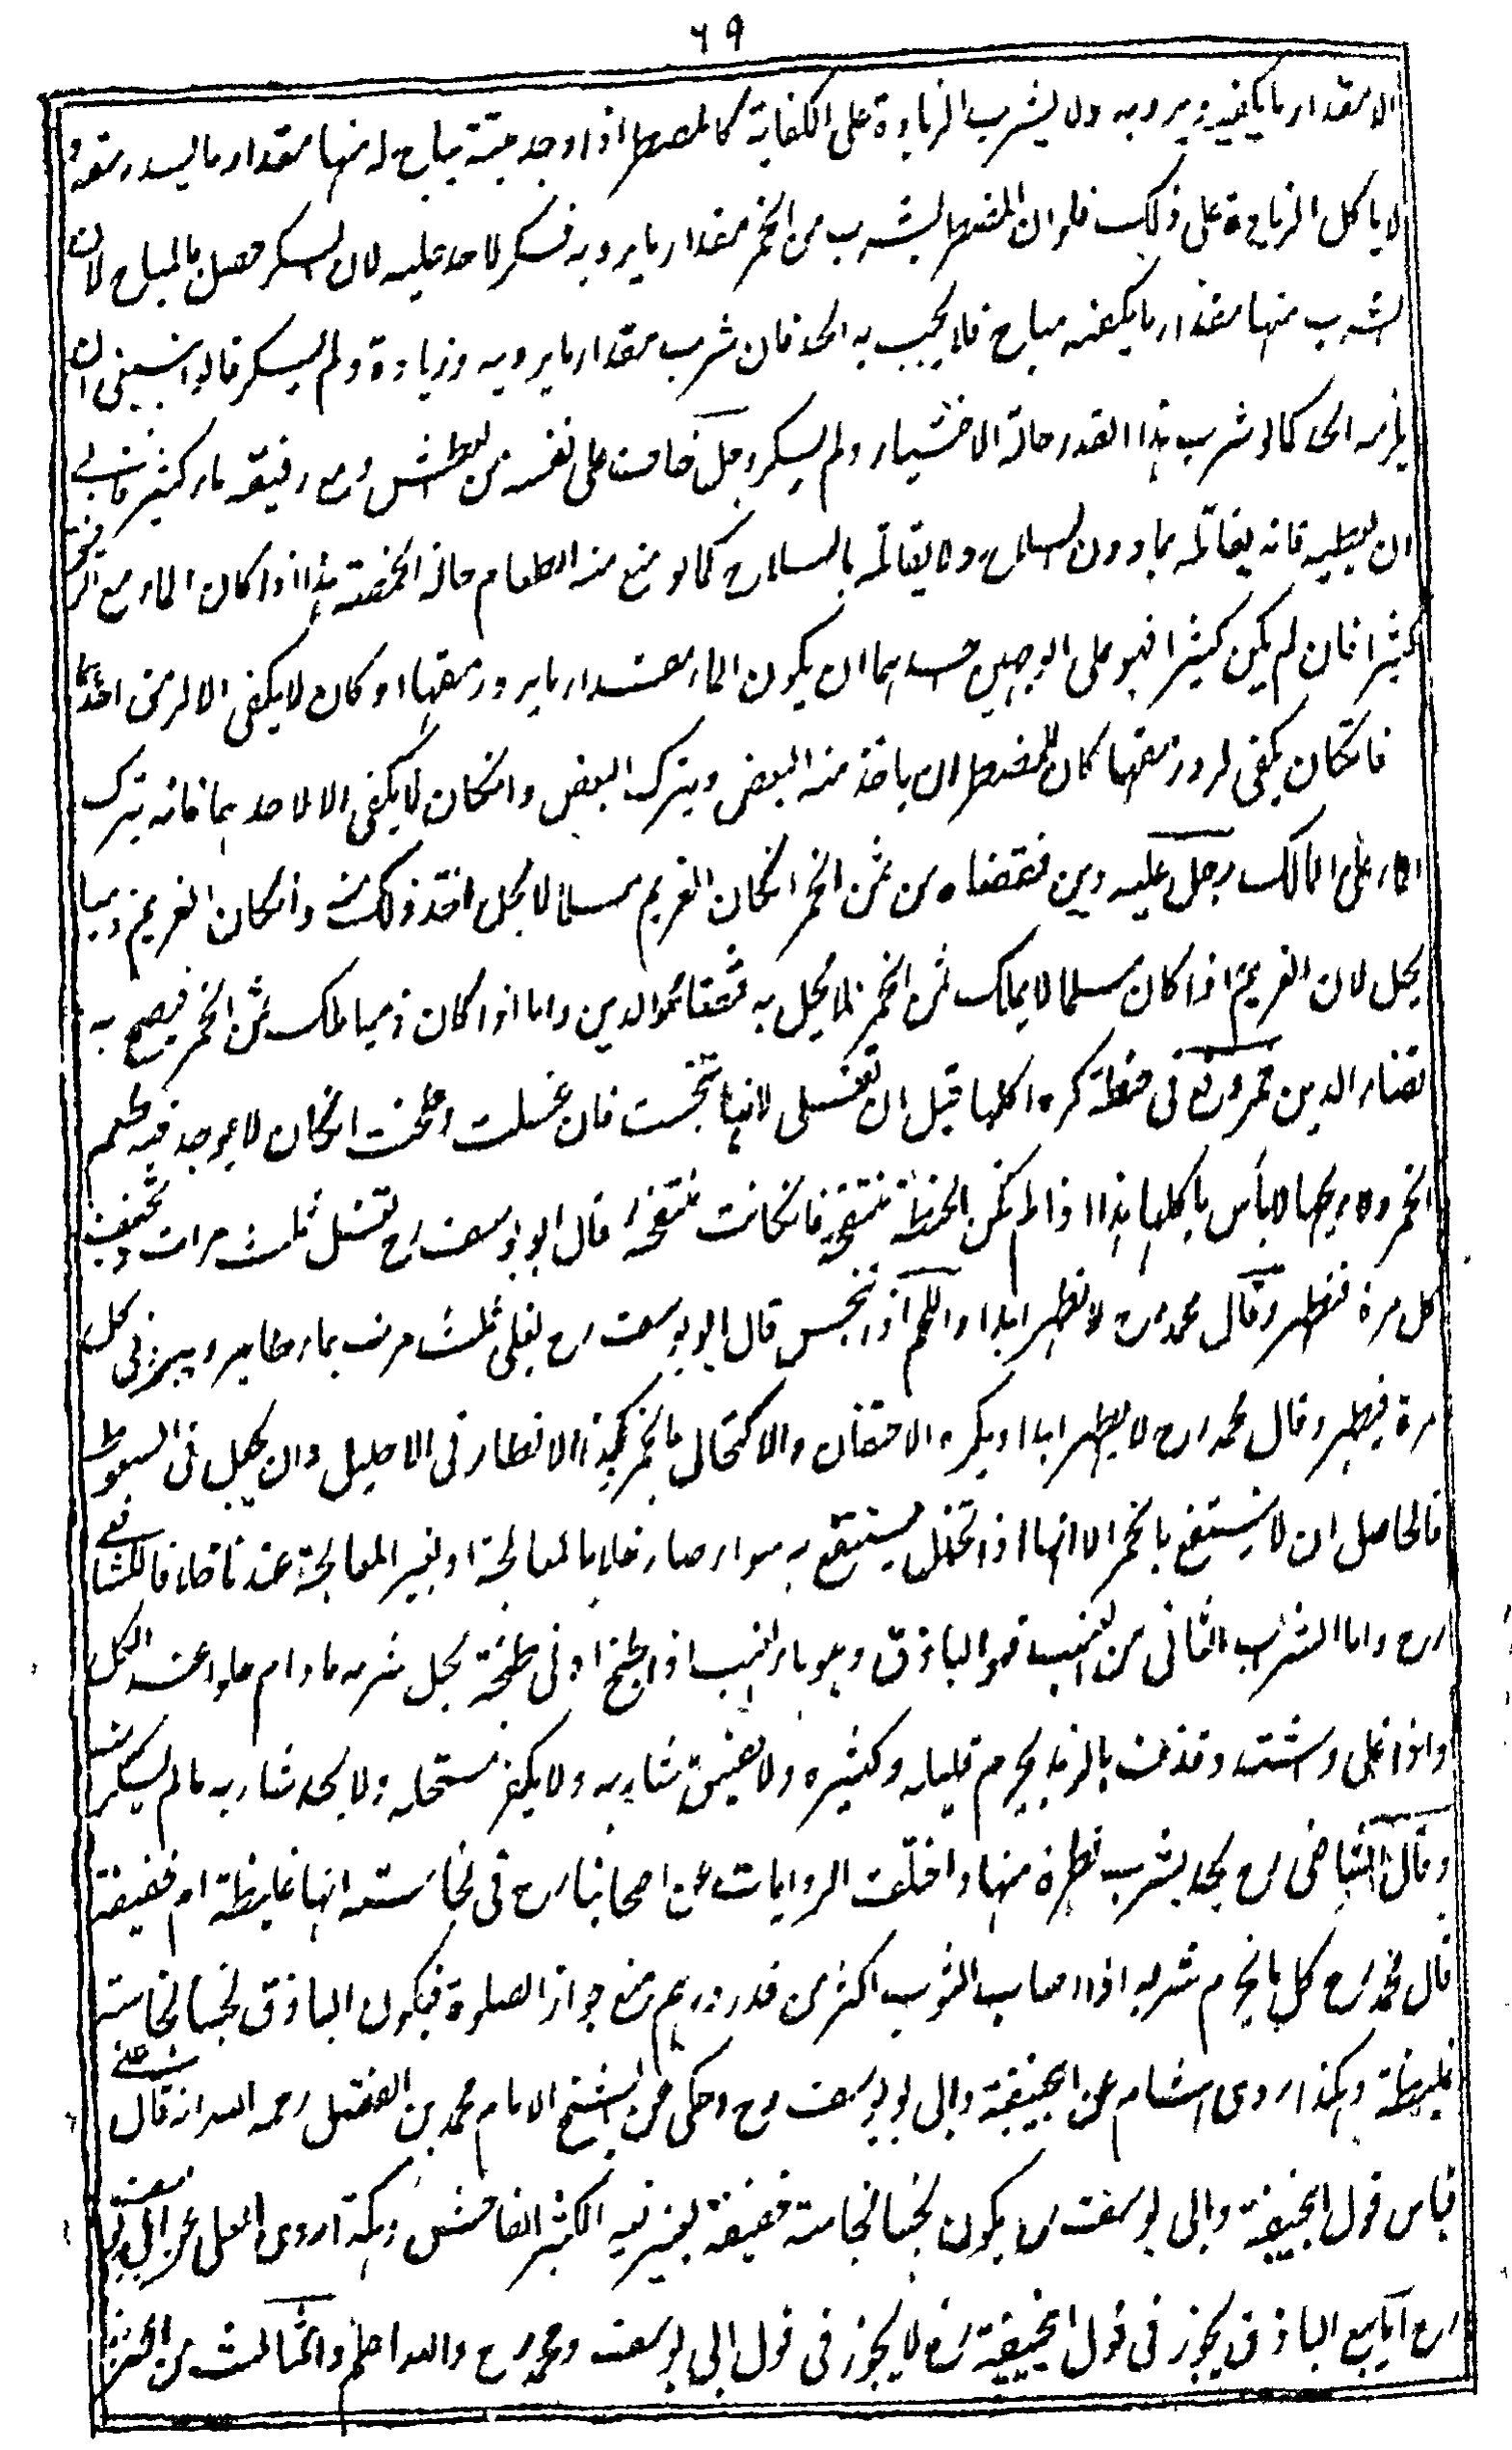 ٦٩
الا مقدار ما يكفيه ويرويه ولا يشرب الزيادة على الكفاية كالمضطر اذا وجد ميتة يباح له منها مقدار ما يسد رمقه و
لا ياكل الزيادة على ذلك فلو ان المضطر يشرب من الخمر مقدار ما يرويه فسكر لا حد عليه لان السكر حصل بالمباح لان
الشرب منها مقدار ما يكفيه مباح فلا يجب به الحد فان شرب مقدار ما يرويه وزيادة ولم يسكر قالوا ينبغي ان
يلزمه الحد كما لو شرب هذا القدر حالة الاختيار ولم يسكر رجل خاف على نفسه من العطش ومع رفيقه ماء كثير فابى
ان يعطيه فانه يقاتله بما دون السلاح ولا يقاتله بالسلاح كما لو منع منه الطعام حالة المخمصة هذا اذا كان الماء مع الرفيق
كثيرا فان لم يكن كثيرا فهو على الوجهين احدهما ان يكون الماء مقدار ما يرد رمقهما او كان لا يكفي الا لرمق احدهما
فانكان يكفي لرد رمقهما كان للمضطر ان ياخذ منه البعض ويترك البعض وانكان لا يكفي الا لاحدهما فانه يترك
الماء على المالك رجل عليه دين فقضاه من ثمن الخمر انكان الغريم مسلما لا يحل اخذ ذلك منه وانكان الغريم ذميا
يحل لان الغريم اذا كان مسلما لا يملك ثمن الخمر فلا يحل به قضاء الدين واما اذا كان ذميا ملك ثمن الخمر فيصح به
قضاء الدين خمر وقع في حنطة كره اكلها قبل ان تغسل لانها تنجست فان غسلت وطحنت انكان لا يوجد فيه طعم
الخمر ولا ريحها لاباس باكلها هذا اذا لم تكن الحنطة منتفخة فانكانت منتفخة قال ابو يوسف رح تغسل ثلث مرات وتجفف
كل مرة فتطهر وقال محمد رح لا تطهر ابدا واللحم اذا تنجس قال ابو يوسف رح يغلى ثلث مرات بماء طاهر ويبرد في كل
مرة فيطهر وقال محمد رح لا يطهر ابدا ويكره الاحتقان والاكتحال بالخمر وكذا الاقطار في الاحليل وان يجعل في السعوط
فالحاصل ان لا ينتفع بالخمر الا انها اذا تخلل ينتفع به سواء صار خلا بالمعالجة او بغير المعالجة عندنا خلافا للشافعي
رح واما الشراب الثاني من العنب فهو الباذق وهو ماء العنب اذا طبخ ادنى طبخة يحل شربه مادام حلوا عند الكل
واذا غلى واشتد وقذف بالزبد يحرم قليله وكثيره ولا يفسق شاربه ولا يكفر مستحله ولا يحد شاربه ما لم يسكر منه
وقال الشافعي رح يحد بشرب قطرة منها واختلف الروايات عن اصحابنا رح في نجاسته انها غليظة ام خفيفة
قال محمد رح كل ما يحرم شربه اذا اصاب الثوب اكثر من قدر درهم يمنع جواز الصلوة فيكون الباذق نجسا نجاسة
غليظة وهكذا روى هشام عن ابيحنيفة وابي يوسف رح وحكي عن الشيخ الامام محمد بن الفضل رحمه الله انه قال على
قياس قول ابيحنيفة وابي يوسف رح يكون نجسا نجاسة خفيفة يعتبر فيه الكثير الفاحش وهكذا روى المعلى عن ابي يوسف
رح بيع الباذق يجوز في قول ابيحنيفة رح لا يجوز في قول ابي يوسف ومحمد رح والله اعلم والثالث من العنب